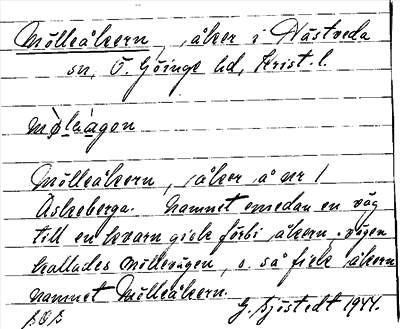 Mölleåkern, åker i Nästveda
sn, Ö. Göinge hd, Krist. l.
Mölleåkern, åker å nr 1
Askeberga. Namnet emedan en väg
till en kvarn gick förbi åkern, vägen
kallades Möllevägen, o. så fick åkern
namnet Mölleåkern.
G. Sjöstedt 1944.